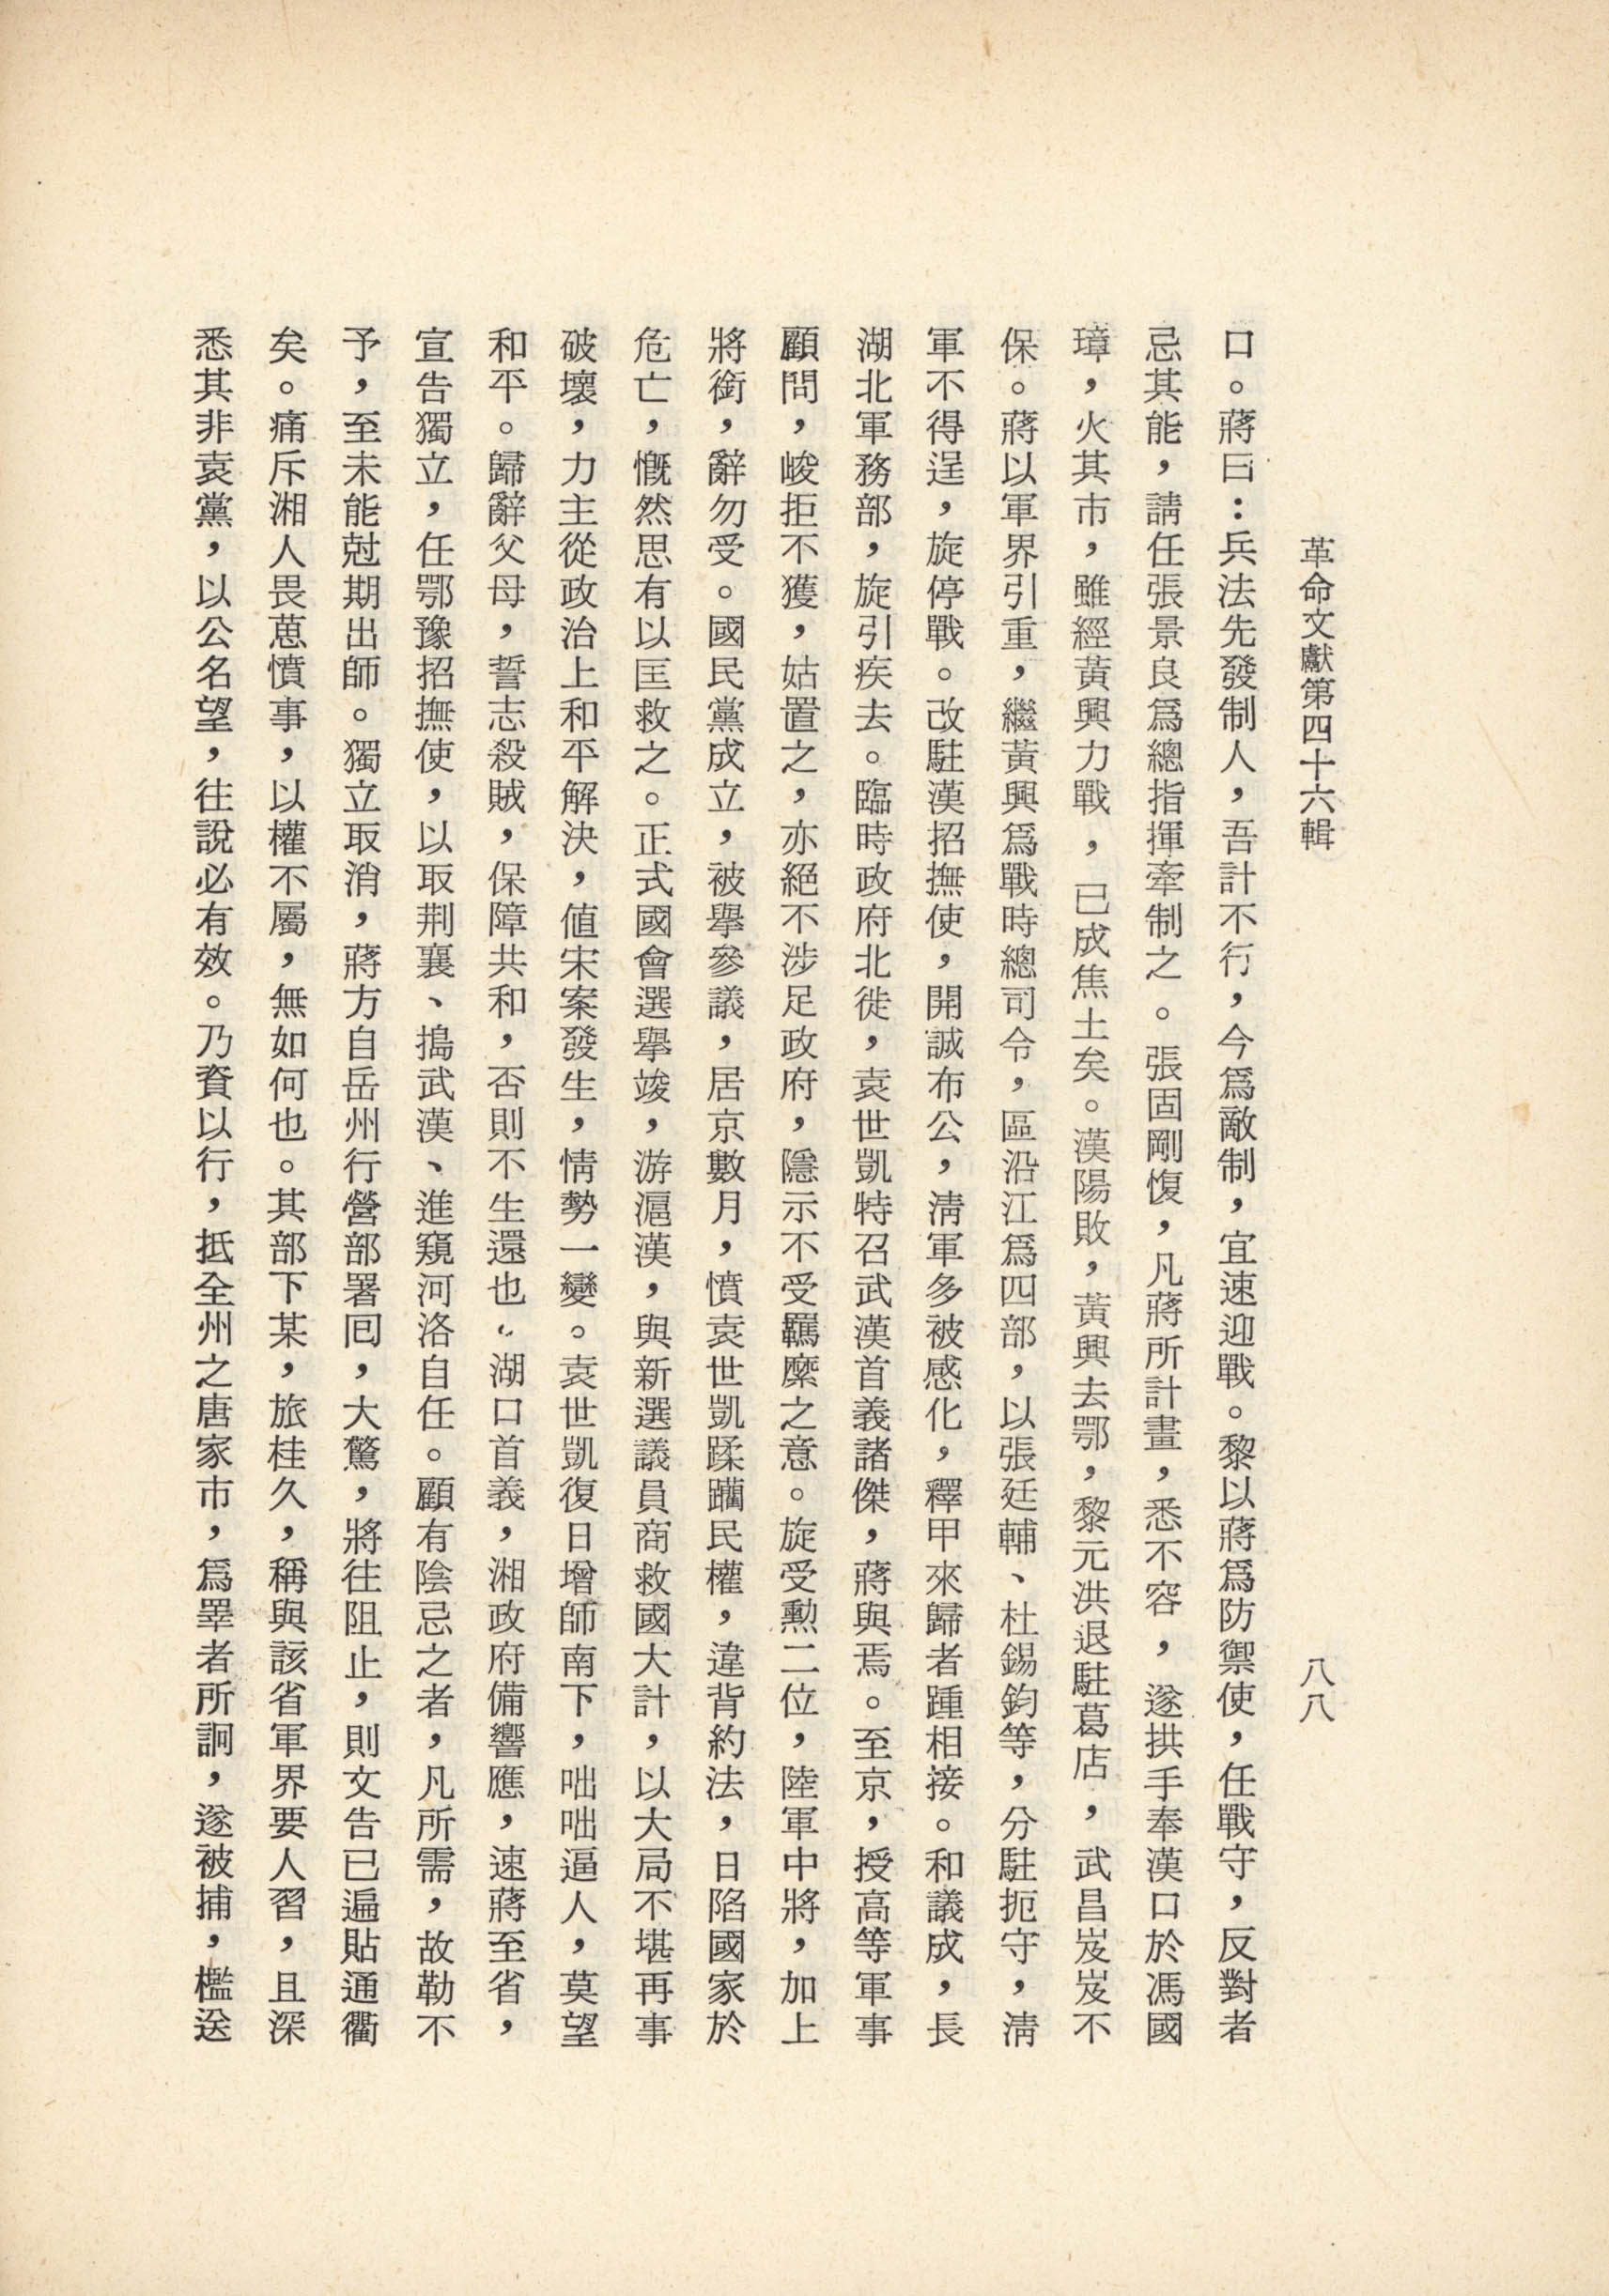 革命文獻第四十六輯
八八
口。蔣曰：兵法先發制人，吾計不行，今爲敵制，宜速迎戰。黎以蔣爲防禦使，任戰守，反對者
忌其能，請任張景良爲總指揮牽制之。張固剛愎，凡蔣所計畫，悉不容，遂拱手奉漢口於馮國
璋，火其市，雖經黃興力戰，已成焦土矣。漢陽敗，黃興去鄂，黎元洪退駐葛店，武昌岌岌不
保。蔣以軍界引重，繼黃興爲戰時總司令，區沿江爲四部，以張廷輔、杜錫鈞等，分駐扼守，淸
軍不得逞，旋停戰。改駐漢招撫使，開誠布公，淸軍多被感化，釋甲來歸者踵相接。和議成，長
湖北軍務部，旋引疾去。臨時政府北徙，袁世凱特召武漢首義諸傑，蔣與焉。至京，授高等軍事
顧問，峻拒不獲，姑置之，亦絕不涉足政府，隱示不受羈縻之意。旋受勳二位，陸軍中將，加上
將銜，辭勿受。國民黨成立，被擧參議，居京數月，憤袁世凱蹂躪民權，違背約法，日陷國家於
危亡，慨然思有以匡救之。正式國會選擧竣，游滬漢，與新選議員商救國大計，以大局不堪再事
破壞，力主從政治上和平解決，値宋案發生，情勢一變。袁世凱復日增師南下，咄咄逼人，莫望
和平。歸辭父母，誓志殺賊，保障共和，否則不生還也。湖口首義，湘政府備響應，速蔣至省，
宣告獨立，任鄂豫招撫使，以取荆襄、搗武漢、進窺河洛自任。顧有陰忌之者，凡所需，故勒不
予，至未能尅期出師。獨立取消，蔣方自岳州行營部署回，大驚，將往阻止，則文告已遍貼通衢
矣。痛斥湘人畏葸憤事，以權不屬，無如何也。其部下某，旅桂久，稱與該省軍界要人習，且深
悉其非袁黨，以公名望，往說必有效。乃資以行，抵全州之唐家市，爲睪者所詗，遂被捕，檻送